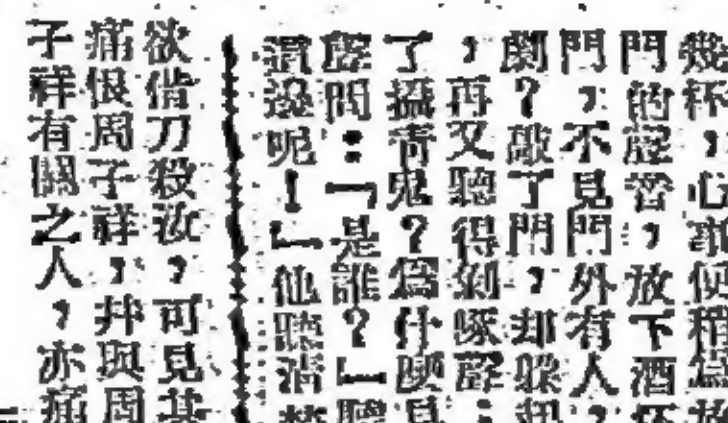 幾杯，心事便稍為放
門的聲音，放下酒杯
門，不見門外有人，
劇？敲了門，却躲起
，再又聽得剝啄聲：
了攝青鬼？為什麼見
聲問：「是誰？」聽
這邊呢！」他聽清楚
欲借刀殺汝，可見其
痛恨周子祥，并與周
子祥有關之人，亦痛